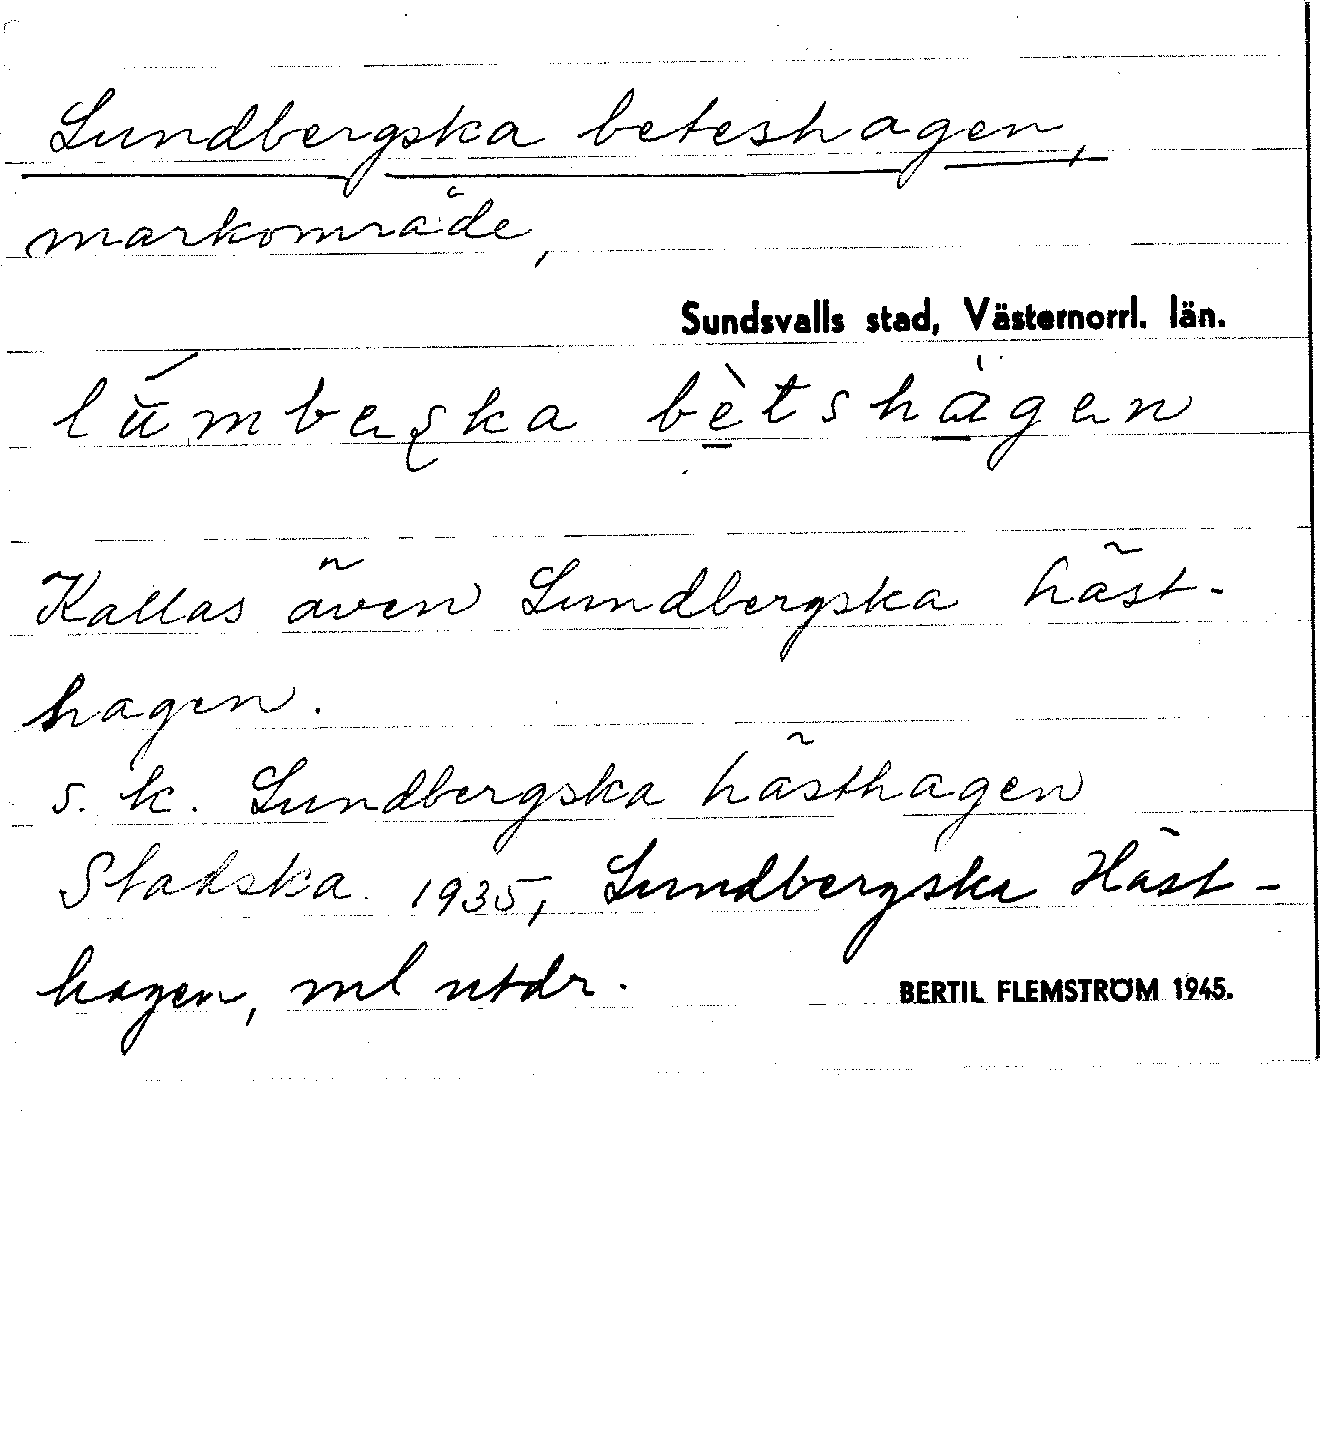 Lundbergska beteshagen,
markområde,
Sundsvalls stad, Västernorrl. län.
lúmbeska bètshàgen
Kallas även Lundbergska häst-
hagen.
s. k. Lundbergska hästhagen
Stadska. 1935, Lundbergska Häst-
hagen, ml utdr.
BERTIL FLEMSTRÖM 1945.